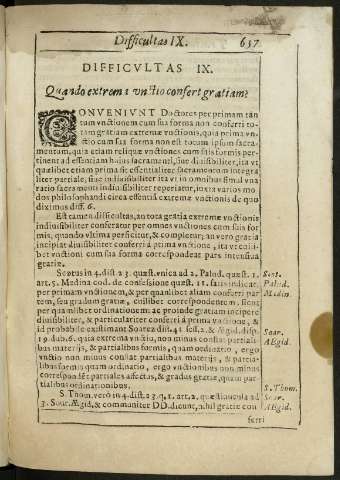 Difficultas IX. 637
DIFFICVLTAS IX.
Quando extrema vnctio confert gratiam?
CONVENIVNT Doctores per primam tan
tum vnctionem cum sua forma non conferri to-
tam gratiam extremæ vnctionis, quia prima vn-
ctio cum sua forma non est totum ipsum sacra-
mentum, quia etiam reliquæ vnctiones cum suis formis per-
tinent ad essentiam huius sacramenti, siue diuisibiliter, ita vt
quælibet etiam prima sit essentialiter sacramentum integra
liter partiale, siue indiuisibiliter ita vt in omnibus simul vna
ratio sacramenti indiuisibiliter reperiatur, iuxta varios mo-
dos philosophandi circa essentiā extremæ vnctionis de quo
diximus diff. 6.
Est tamen difficultas, an tota gratia extremæ vnctionis
indiuisibiliter conferatur per omnes vnctiones cum suis for
mis, quando vltima perficitur, & completur; an vero gratia
incipiat diuisibiliter conferri à prima vnctione, ita vt cuili-
bet vnctioni cum sua forma correspondeat pars intensiua
gratiæ.
Scotus in 4. dist. 23. quæst. vnica ad 2. Palud. quæst. 1.
art. 5. Medina cod. de confessione quæst. 18. satis indicat,
per primam vnctionem, & per quamlibet aliam conferri par
tem, seu gradum gratiæ, cuilibet correspondentem. Sicut
per quamlibet ordinationem: ac proinde gratiam incipere
diuisibiliter, & particulariter conferri à prima vnctione, &
id probabile existimant Soarez disp. 41 sect. 2. & Ægid. disp.
19. dub. 6. quia extrema vnctio, non minus constat partiali-
bus materijs, & partialibus formis, quam ordinatio, ergo
vnctio non minus constat partialibus materijs, & partia-
libus formis quam ordinatio, ergo vnctionibus non minus
correspondēt partiales affectus, & gradus gratiæ, quam par
tialibus ordinationibus.
S. Thom. vero in 4. dist. 23. q. 1. art. 2. quæstiuncula ad
3. Soar. Ægid. & communiter DD. dicunt, nihil gratiæ con
ferri
Scot.
Palud.
Medin.
Soar.
AEgid.
S. Thom.
Soar.
AEgid.